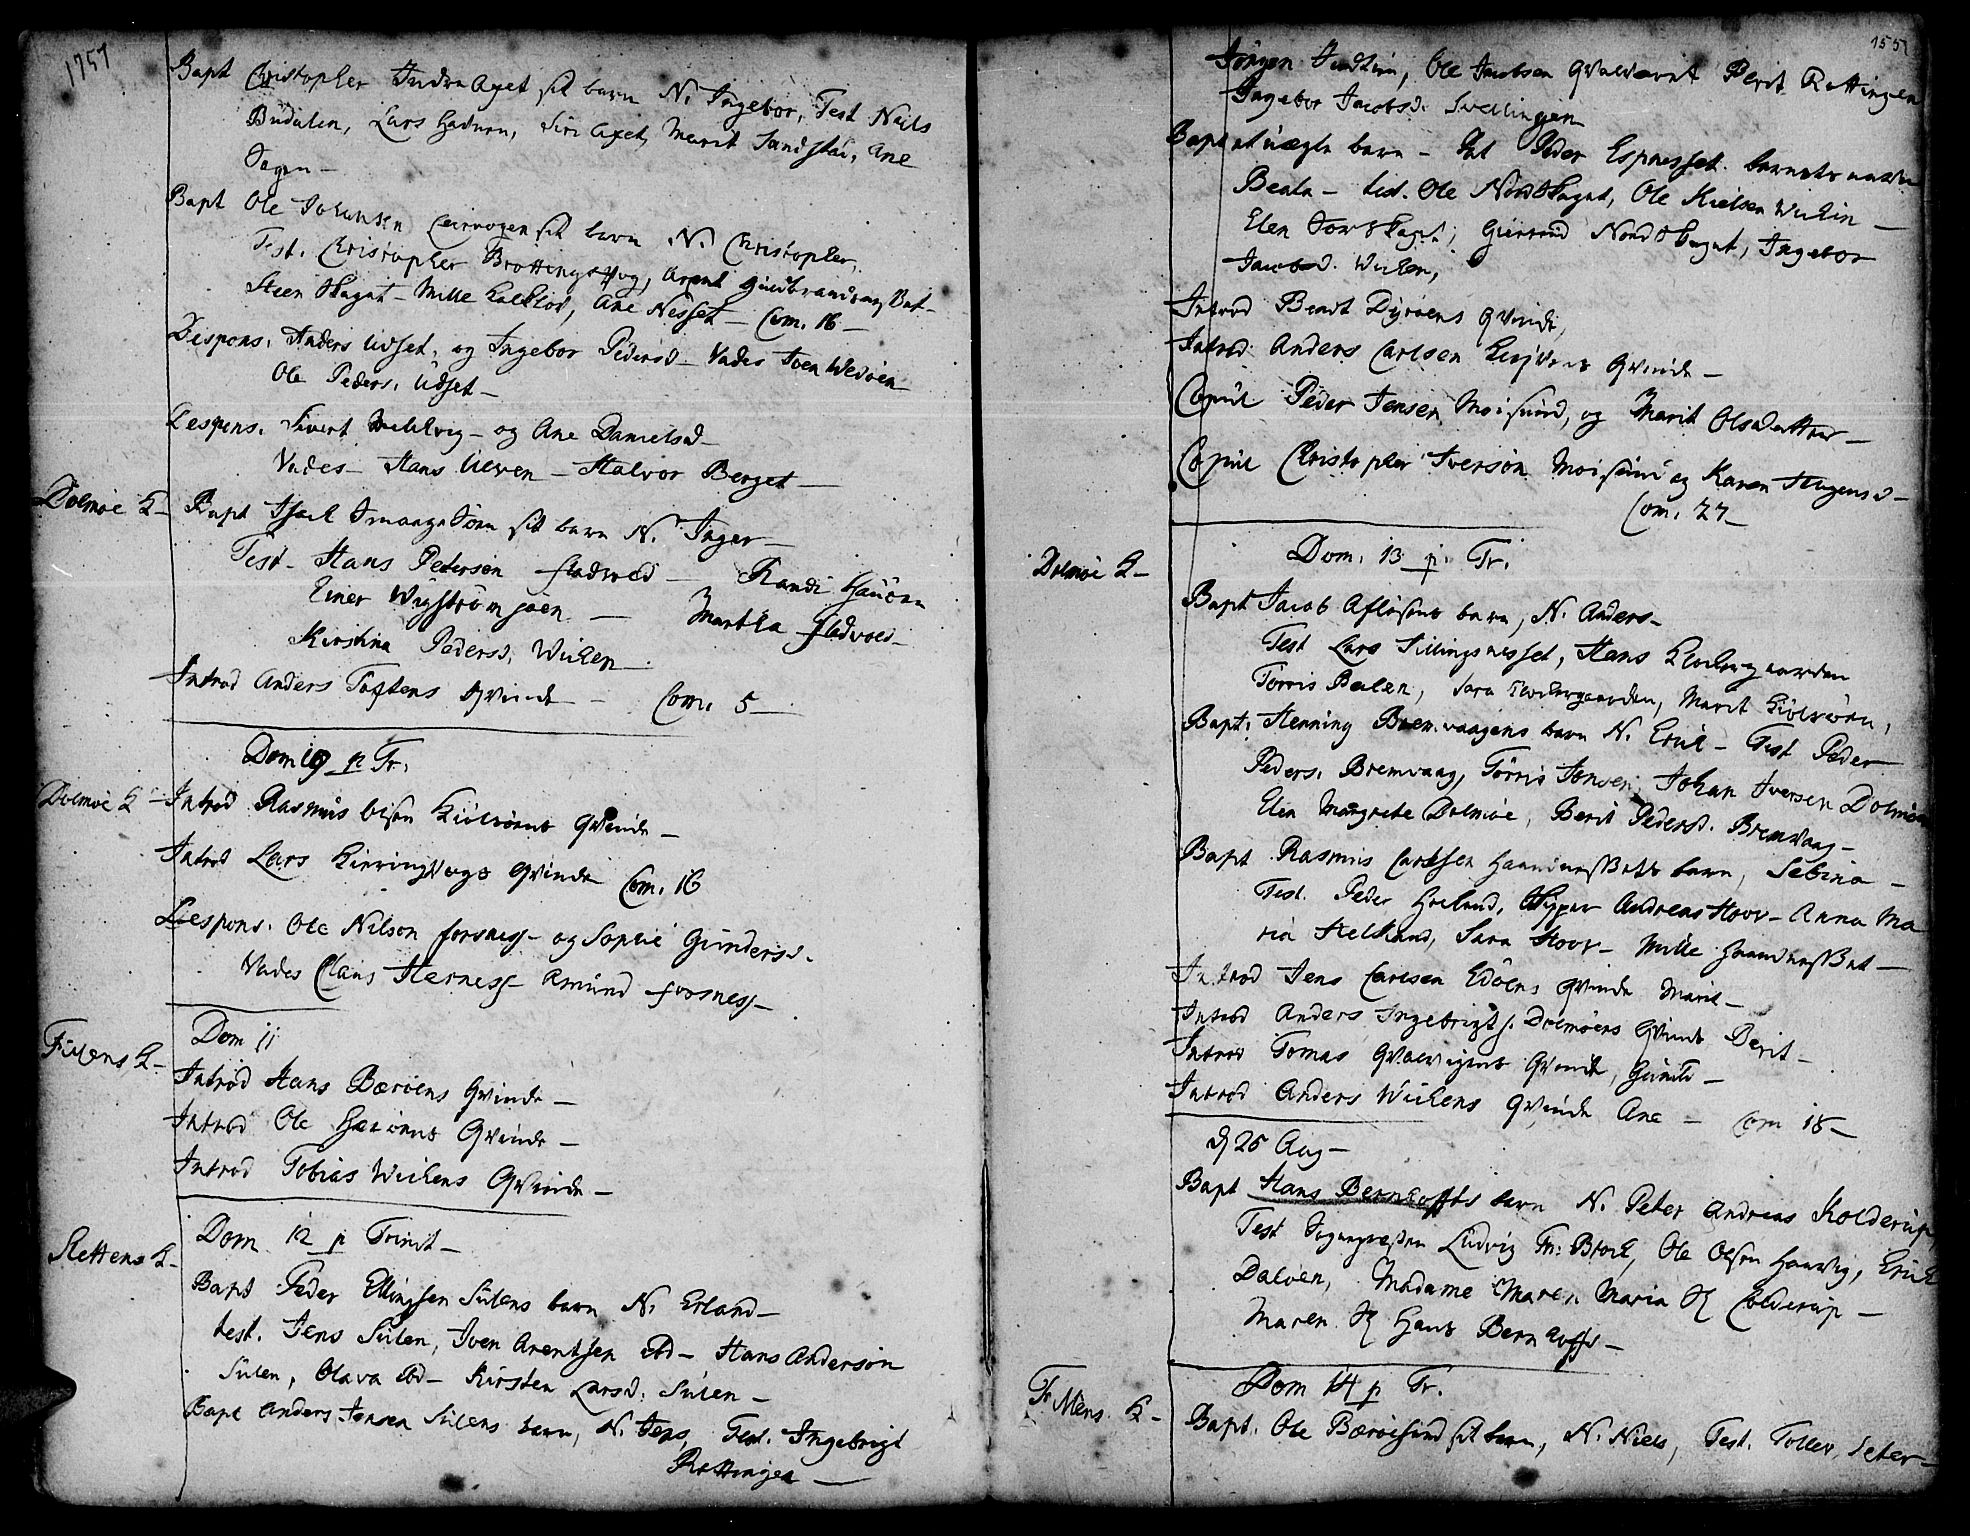 1757
Bapt Christopher Indre Axet sit barn N. Ingebor, Test Niels
Budalen, Lars Hadnen, Siri Axet, Marit Sandstad, Ane
Bapt Ole Johansen sit barn N. Christopher,
Test. Christopher Brottingsvog, Arent Guldbrandsøy Bat-
Steen Skaget - Mille Kalklov, Ane Nesset - Com. 16 -
Despons. Anders Udset, og Ingebor Pedersd - Vades Joen Wedøen
Ole Peders. Udset -
Despons. Sivert og Ane Danielsd -
Vades - Hans Ulven - Halvor Berget -
Dolmøe K - Bapt sit barn N. Inger -
Test - Hans Pedersen fladvold - Randi
Einer Wigstrømsøen - Martha fladvold -
Kirstina Pedersd. Wichen
Introd Anders Toftens qvinde - Com. 5 -
Dom 10 p Tr.
Dolmøe K - Introd Rasmus Olsen Kiølsøens Qvinde -
Introd Lars Kierringvogs Qvinde Com. 16
Despons. Ole Nilson forsness - og Sophie Gundersd.
Vades Claus Herness Amund forsness -
Dom 11
Filens K - Introd Hans Bærøens Qvinde -
Introd Ole Qvinde -
Introd Tobias Wichens Qvinde -
Dom 12 p Trinit -
Slettens K - Bapt Peder Ellingsen Sulens barn N. Erland -
test. Jens Sulen, Iven Arentsen ibd - Hans Anderson
Sulen, Olava ibd - Kirsten Larsd. Sulen -
Bapt Anders Jensen Sulens barn, N. Jens, Test. Ingebrigt
Rottingen -
1557
Jørgen Ole Jacobsen Berit Rottingen
Ingebor Jacobsd. Svellingen
Bapt et uægte barn - Peder Espnesset. barnets navn
Beata - test. Ole Nordskaget, Ole Nielsen Wichen -
Elen Sorskaget, Gunnild Nordskaget, Ingebor
Jacobsd. Wichen,
Introd Bendt Dyrøens qvinde,
Introd Anders Carlsen Qvinde -
Copul Peder Jensen Moisund, og Marit Olsdatter -
Copul Christopher Iverson Moisund og Karen
Com. 27 -
Dom. 13 p. Tr.
Dolmøe K - Bapt Jacob Afløsens barn, N. Anders -
Test Lars Sillingsnesset, Hans Klochergaarden
Tørris Balen, Sara Klochergaarden, Marit Kiølsøen,
Bapt. Henning Bremvaagens barn N. Erik - Test Peder
Peders. Bremvaag, Tørris Jensen, Johan Iversen Dolmøen
Elen Margrete Dolmøe, Berit Pedersd. Bremvaag -
Bapt Rasmus Carlsen barn, Sebina -
Test. Peder Andreas Hoor - Anna Ma
ria Sara Hoor - Mille
Introd Jens Carlsen Edøens Qvinde Marit -
Introd Anders Ingebrigts. Dolmøens Qvinde Berit -
Introd Tomas Qvalvigens Qvinde, Gunild -
Introd Anders Wichens Qvinde Ane - Com 18 -
d 26 Aug -
Bapt Hans Bernhoffts barn N. Peter Andreas Kolderup
Test Ludvig Fr: Brock, Ole Olsen Haavig, Erich
Dalöen, Madame Maren Maria Sl Colderup -
Maren Sl Hans Bernhoffts -
Dom 14 p Tr.
Fillens K - Bapt. Ole Bærøesund sit barn, N. Niels, Test. Toller Seter -